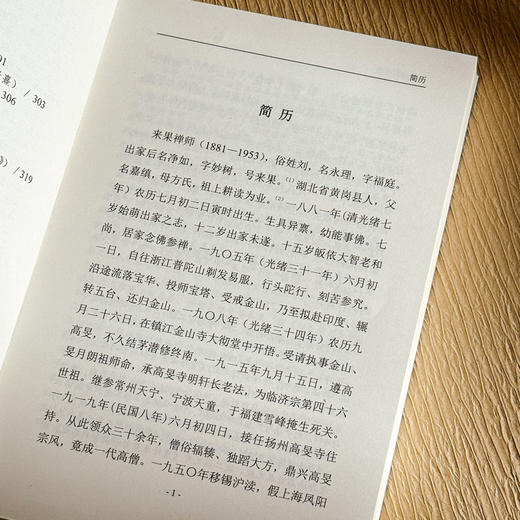 91
熹）
/ 303
306
》/ 319
简历
简 历
来果禅师（1881—1953），俗姓刘，名永理，字福庭。
出家后名净如，字妙树，号来果。⁽¹⁾湖北省黄岗县人，父
名嘉缜，母方氏，祖上耕读为业。⁽²⁾一八八一年（清光绪七
年）农历七月初二日寅时出生。生具异禀，幼能事佛。七
岁始萌出家之志，十二岁出家未遂。十五岁皈依大智老和
尚，居家念佛参禅。一九〇五年（光绪三十一年）六月初
一日，自往浙江普陀山剃发易服，行头陀行、刻苦参究。
沿途流落宝华、投师宝塔、受戒金山，乃至拟赴印度、辗
转五台、还归金山。一九〇八年（光绪三十四年）农历九
月二十六日，在镇江金山寺大彻堂中开悟。受请执事金山、
高旻，不久结茅潜修终南。一九一五年九月十五日，遵高
旻月朗祖师命，承高旻寺明轩长老法，为临济宗第四十六
世祖。继参常州天宁、宁波天童，于福建雪峰掩生死关。
一九一九年（民国八年）六月初四日，接任扬州高旻寺住
持。从此领众三十余年，僧俗福辏、独蹈大方，鼎兴高旻
宗风，竟成一代高僧。一九五〇年移锡沪渎，假上海凤阳
- 1 -